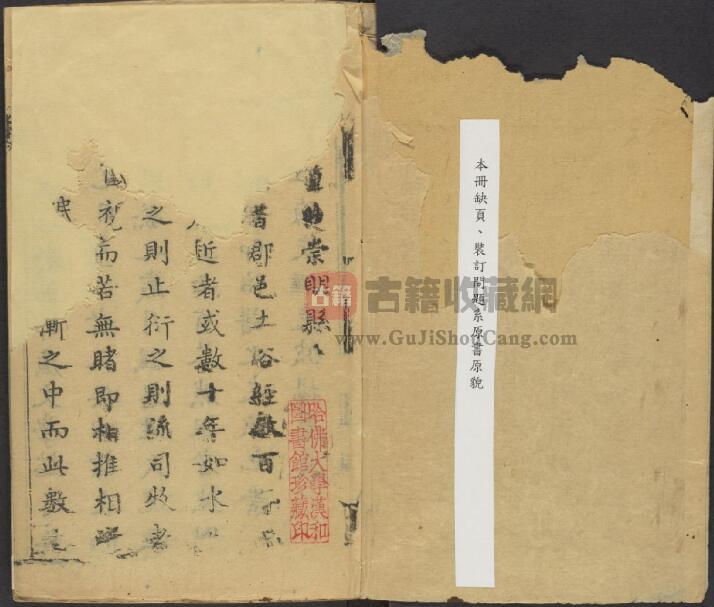 本冊缺頁、裝訂問題系原書原貌
崇明縣
郡邑土俗經數百
近者或數十年如水
之則止衍之則流司牧者
視而若無睹即相推相
民
漸之中而此數
哈佛大學漢和
圖書館珍藏印
古籍 古籍收藏網
www.GuJiShouCang.com